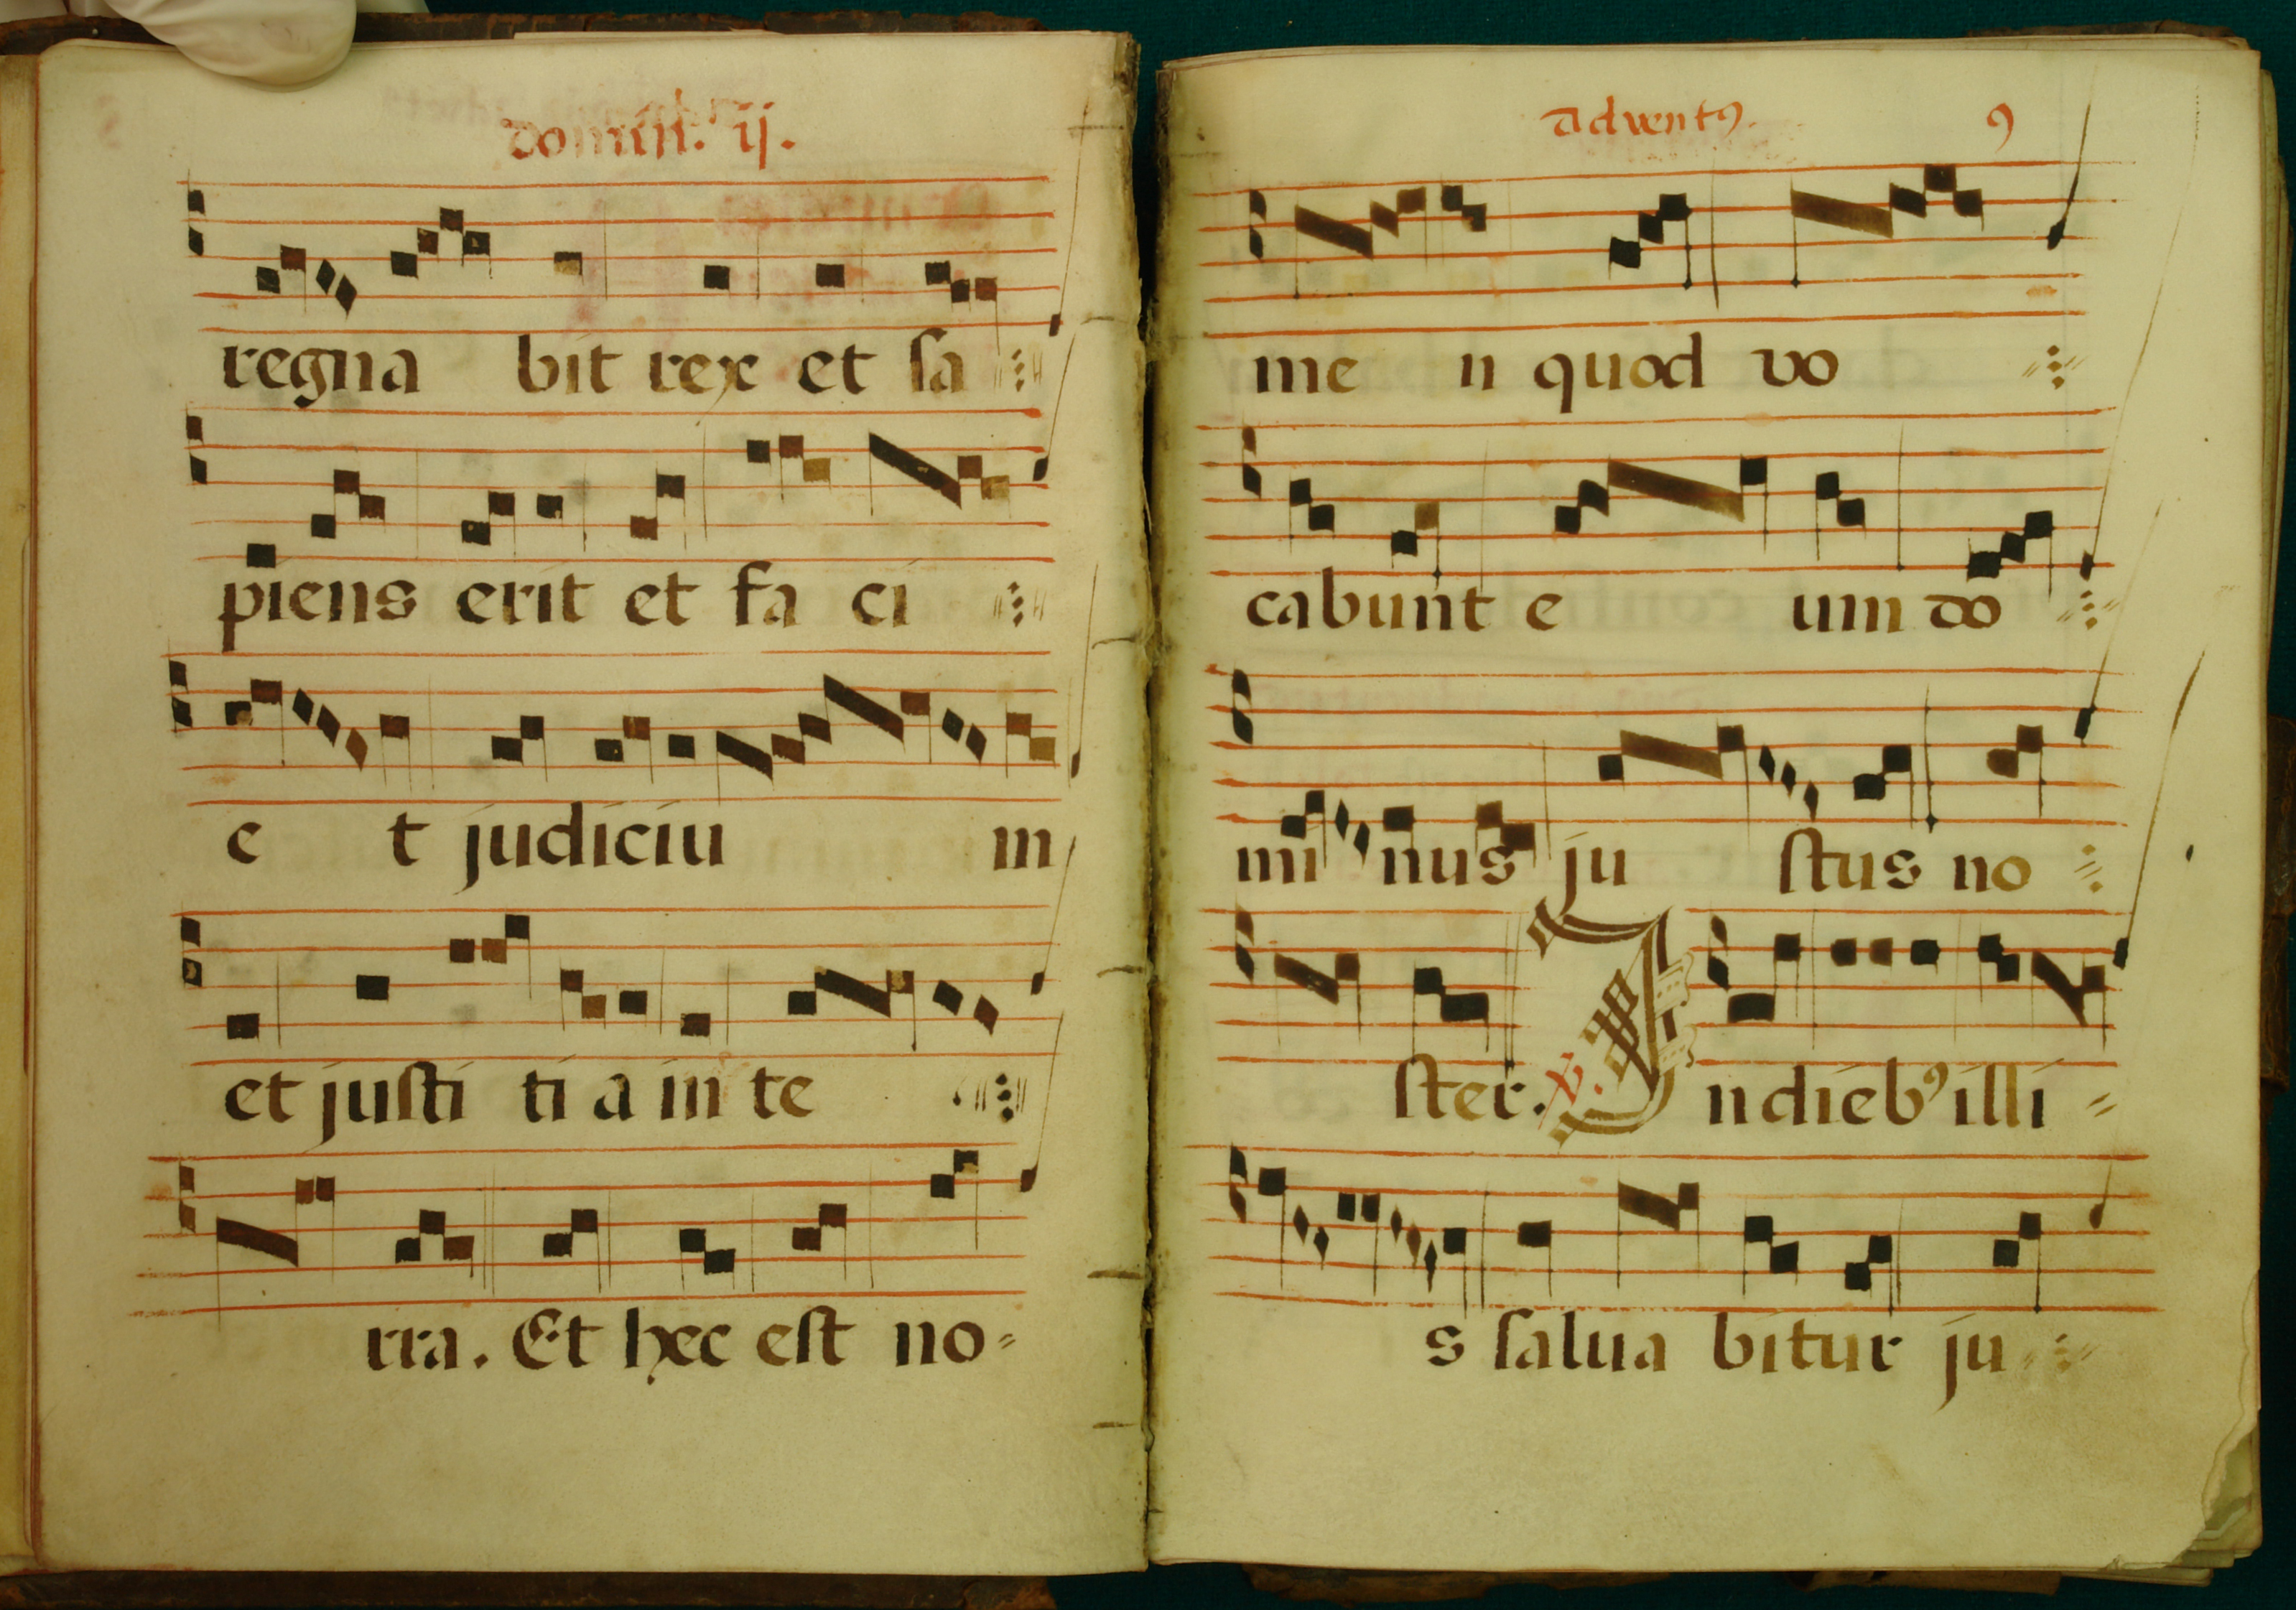 domin. ij.
regna bit rex et sa
piens erit et fa ci
e t judiciu in
et justi ti a in te
rra. Et hec est no-
adventꝰ. 9
me n quod vo
cabunt e um do
mi nus ju stus no
ster. ℣. In diebꝰ illi
s salua bitur ju